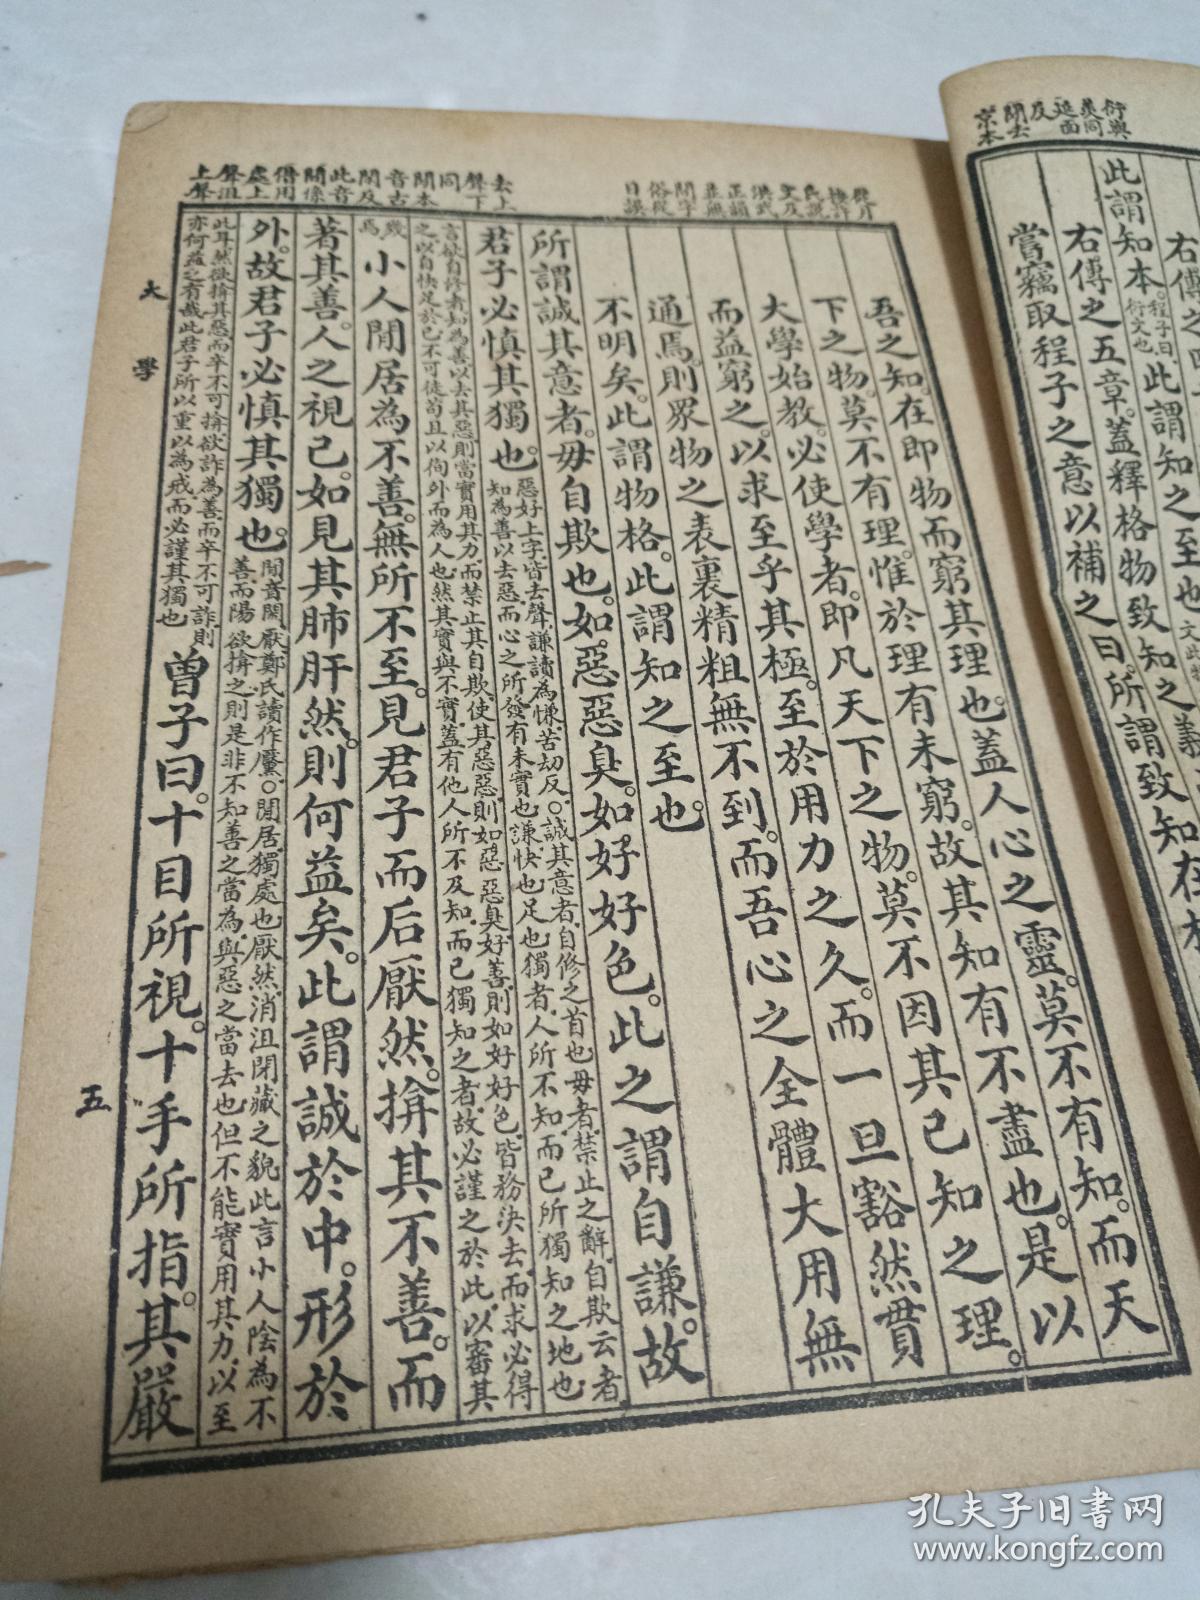 此謂知本程子曰衍文也此謂知之至也
右傳之五章蓋釋格物致知之義
嘗竊取程子之意以補之曰所謂致知在格
吾之知在即物而窮其理也蓋人心之靈莫不有知而天
下之物莫不有理惟於理有未窮故其知有不盡也是以
大學始教必使學者即凡天下之物莫不因其已知之理
而益窮之以求至乎其極至於用力之久而一旦豁然貫
通焉則眾物之表裏精粗無不到而吾心之全體大用無
不明矣此謂物格此謂知之至也
所謂誠其意者毋自欺也如惡惡臭如好好色此之謂自謙故
君子必慎其獨也
惡好上字皆去聲謙讀為慊苦劫反○誠其意者自修之首也毋者禁止之辭自欺云者
知為善以去惡而心之所發有未實也謙快也足也獨者人所不知而己所獨知之地也
言欲自修者知為善以去其惡則當實用其力而禁止其自欺使其惡惡則如惡惡臭好善則如好好色皆務決去而求必得
之以自快足於己不可徒苟且以徇外而為人也然其實與不實蓋有他人所不及知而己獨知之者故必謹之於此以審其
幾焉
小人閒居為不善無所不至見君子而后厭然揜其不善而
著其善人之視己如見其肺肝然則何益矣此謂誠於中形於
外故君子必慎其獨也
閒音閑厭鄭氏讀作黶○閒居獨處也厭然消沮閉藏之貌此言小人陰為不
善而陽欲揜之則是非不知善之當為與惡之當去也但不能實用其力以至
此耳然欲揜其惡而卒不可揜欲詐為善而卒不可詐則
亦何益之有哉此君子所以重以為戒而必謹其獨也
曾子曰十目所視十手所指其嚴
大學
五
孔夫子旧书网
www.kongfz.com